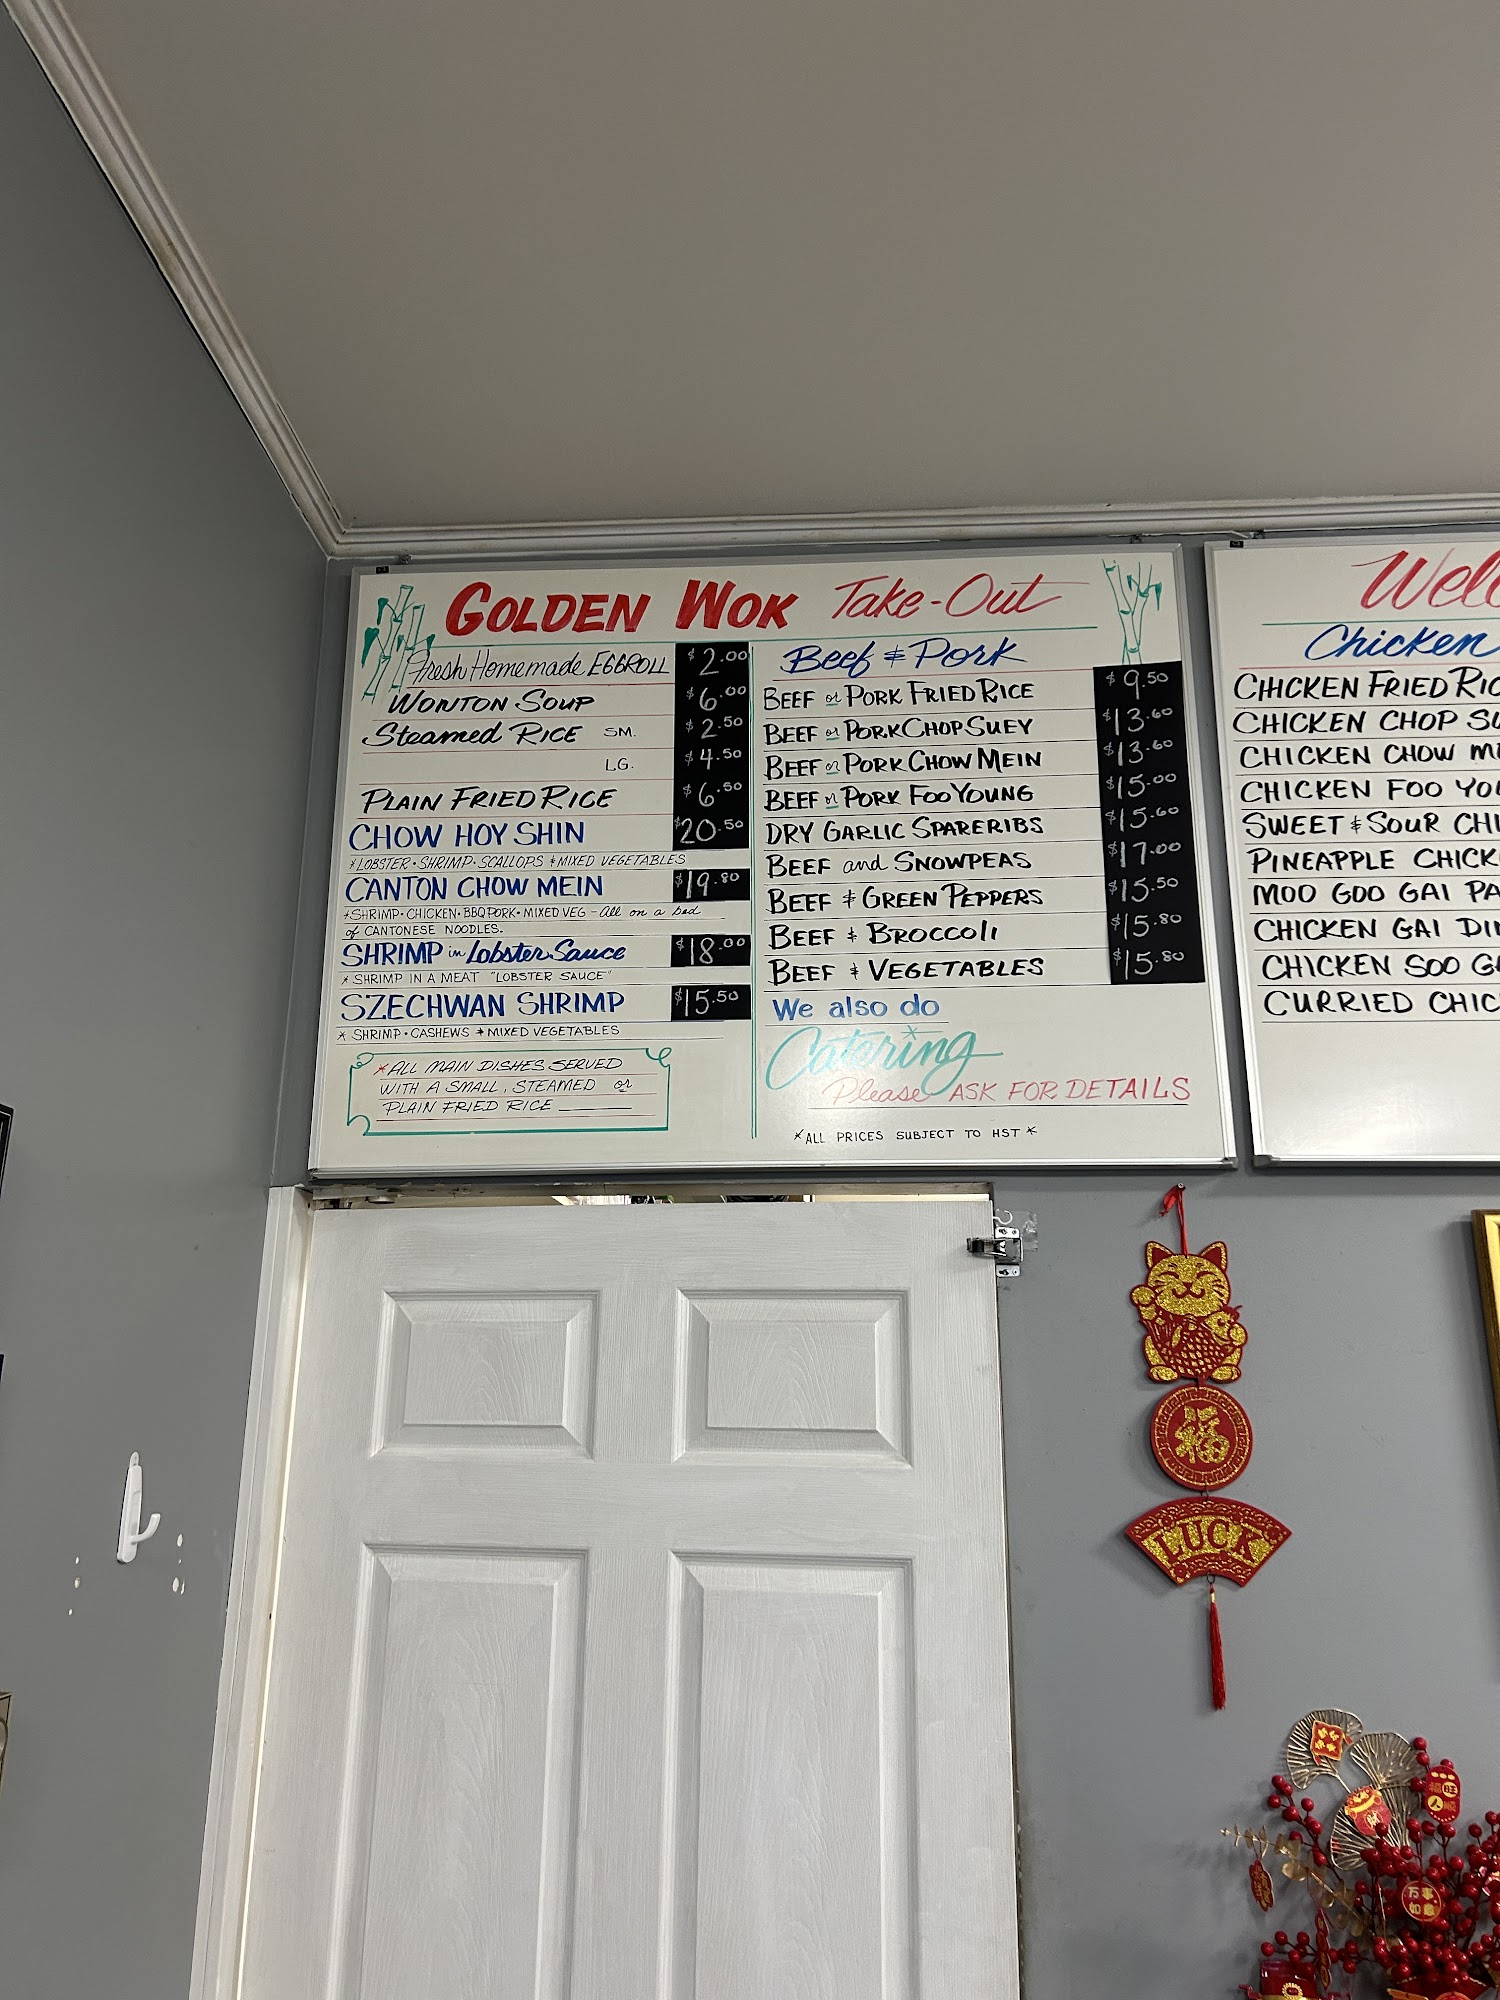 GOLDEN WOK Take-Out
Fresh Homemade EGGROLL $2.00
WONTON SOUP $6.00
STEAMED RICE SM. $2.50
LG. $4.50
PLAIN FRIED RICE $6.50
CHOW HOY SHIN $20.50
*LOBSTER·SHRIMP·SCALLOPS & MIXED VEGETABLES
CANTON CHOW MEIN $19.80
*SHRIMP·CHICKEN·BBQ PORK·MIXED VEG - All on a bed
of CANTONESE NOODLES.
SHRIMP in Lobster Sauce $18.00
* SHRIMP IN A MEAT "LOBSTER SAUCE"
SZECHWAN SHRIMP $15.50
* SHRIMP·CASHEWS & MIXED VEGETABLES
*ALL MAIN DISHES SERVED
WITH A SMALL, STEAMED or
PLAIN FRIED RICE
Beef & Pork
BEEF or PORK FRIED RICE $9.50
BEEF or PORK CHOP SUEY $13.60
BEEF or PORK CHOW MEIN $13.60
BEEF or PORK FOO YOUNG $15.00
DRY GARLIC SPARERIBS $15.60
BEEF and SNOWPEAS $17.00
BEEF & GREEN PEPPERS $15.50
BEEF & BROCCOLI $15.80
BEEF & VEGETABLES $15.80
We also do
Catering
Please ASK FOR DETAILS
*ALL PRICES SUBJECT TO HST*
Chicken
CHICKEN FRIED
CHICKEN CHOP
CHICKEN CHOW
CHICKEN FOO
SWEET & SOUR
PINEAPPLE
MOO GOO GAI
CHICKEN GAI
CHICKEN SOO
CURRIED
福
LUCK
万事
如意